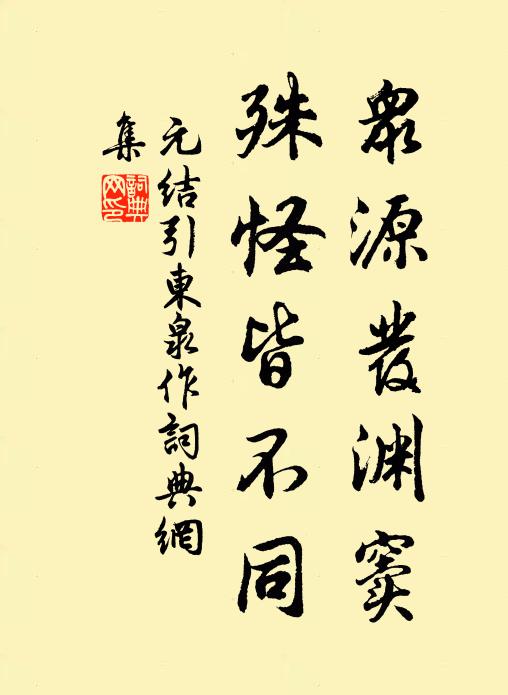 眾源發淵竇
殊怪皆不同
元结引東泉作詞典網
集
詞典
网印